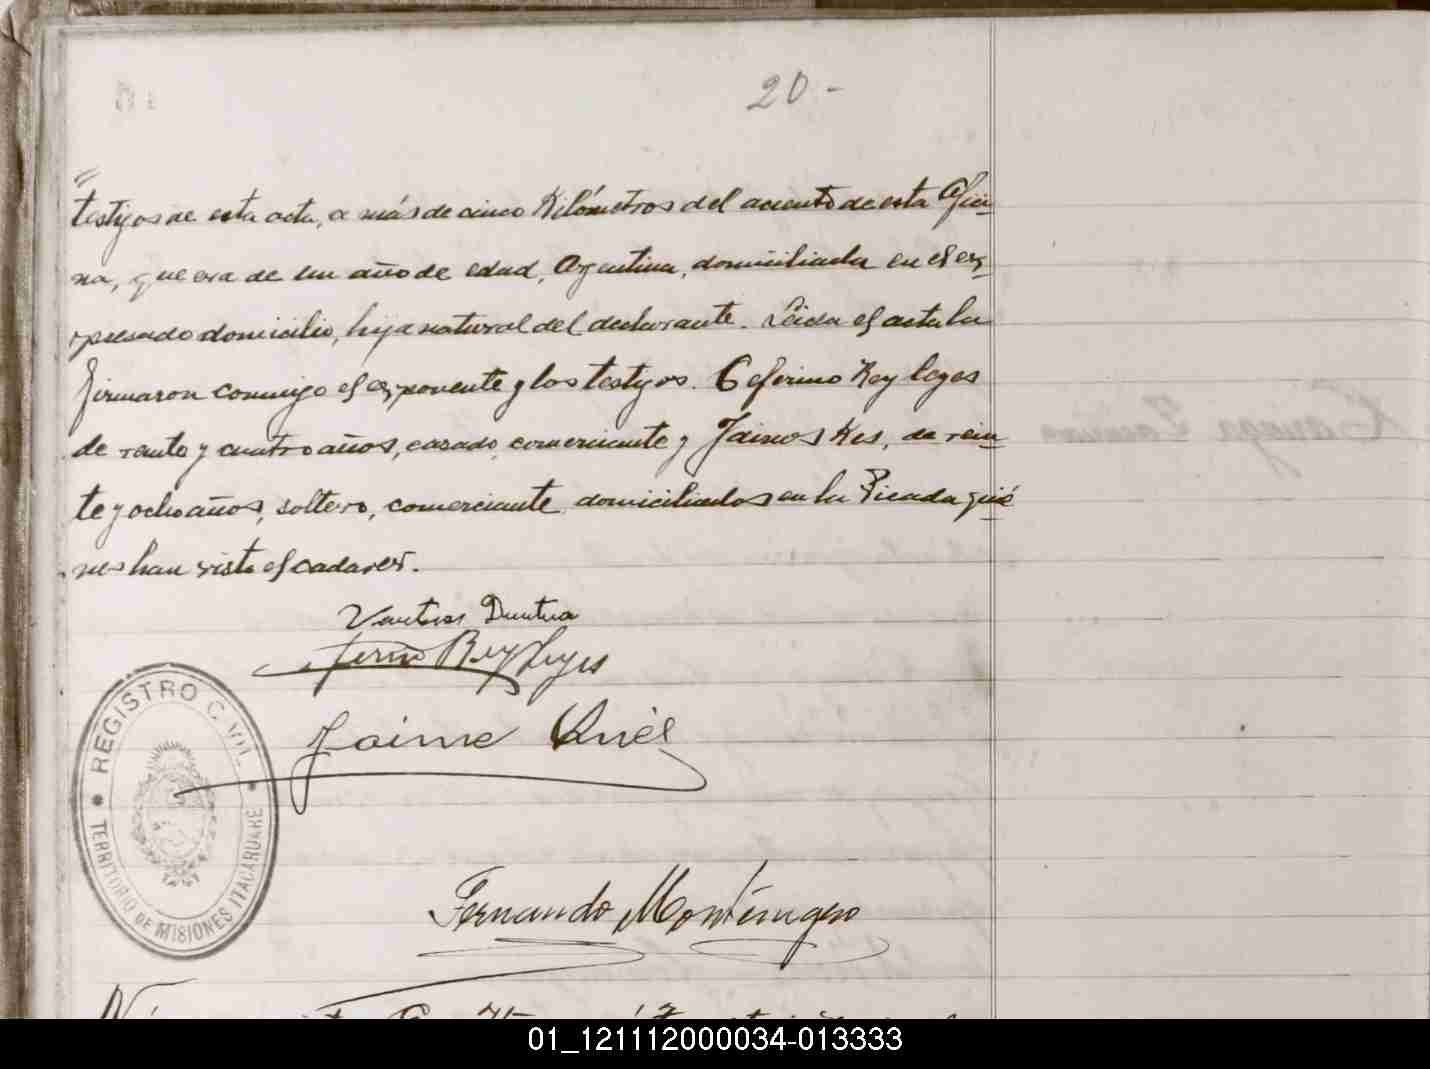 20-
testijos de esta acta, a más de cinco Kilómetros del aciento de esta Ofici-
na, que era de un año de edad, Argentina, domiciliada en el ex-
presado domicilio, hija natural del declarante. Leida el acta la
firmaron conmigo el exponente y los testijos. Ceferino Rey leyes
de reinta y cuatro años, casado, comerciante y Jaimes Kes, de rein-
te y ocho años, soltero, comerciante domiciliados en la Picada quié
nes han visto el cadaver.
Rey Leyes
Jaime
REGISTRO CIVIL
TERRITORIO DE MISIONES ITACARUARÉ
Fernando Montenegro
01_121112000034-013333